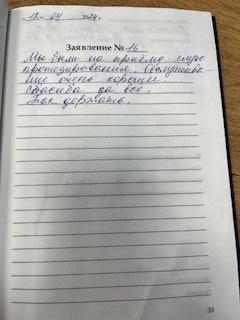 12. 04 2024г.
Заявление № 16
Мы были на приёме слухо
протезирования. Обслужива-
ние очень хорошее.
Спасибо за все.
Так держать.
33